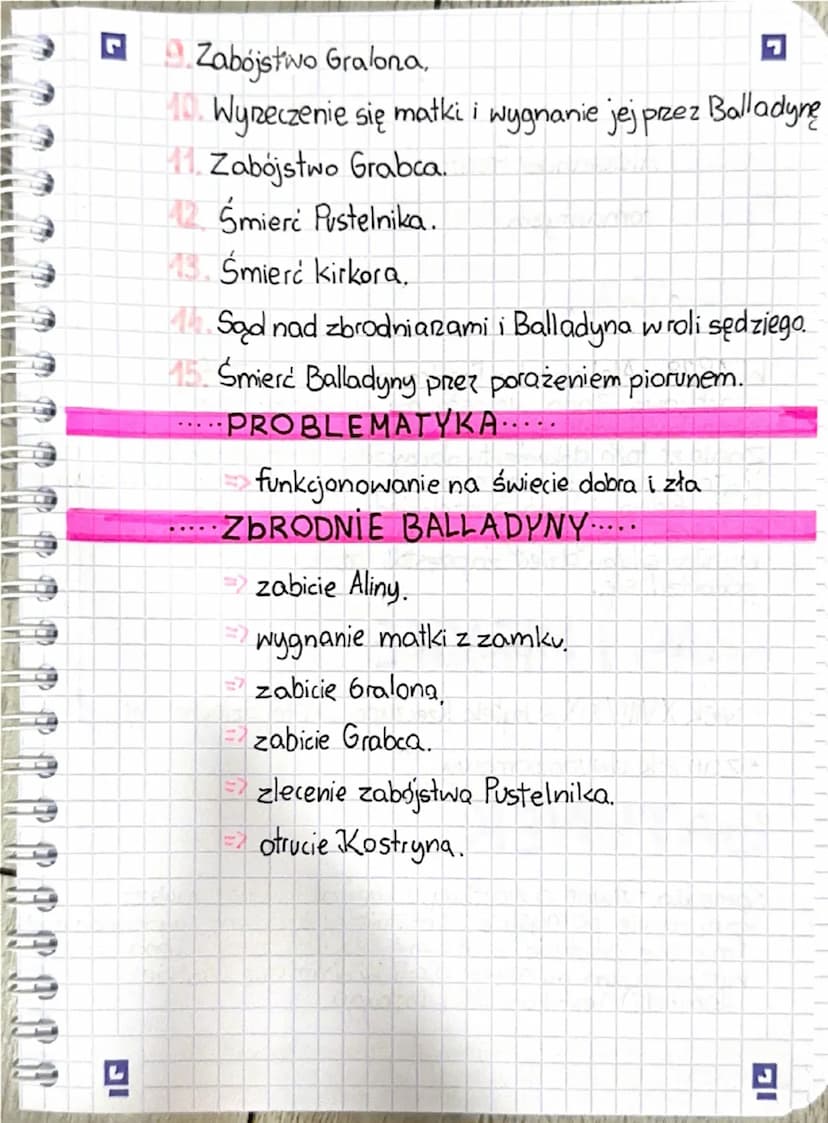 9. Zabójstwo Gralona.
10. Wyrzeczenie się matki i wygnanie jej przez Balladynę
11. Zabójstwo Grabca.
12. Śmierć Pustelnika.
13. Śmierć kirkora.
14. Sąd nad zbrodniarzami i Balladyna w roli sędziego.
15. Śmierć Balladyny przez porażeniem piorunem.
.....PROBLEMATYKA.....
=> funkcjonowanie na świecie dobra i zła
.....ZbRODNIE BALLADYNY.....
=> zabicie Aliny.
=> wygnanie matki z zamku.
=> zabicie Gralona.
=> zabicie Grabca.
=> zlecenie zabójstwa Pustelnika.
=> otrucie Kostryna.